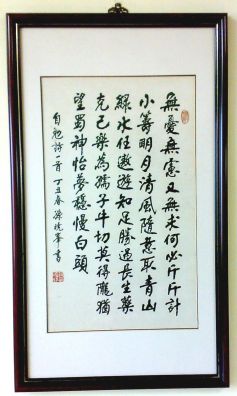 無憂無慮又無求何必斤斤計
小籌明月清風隨意取青山
綠水任遨遊知足勝過長生藥
克己樂為孺子牛切莫得隴猶
望蜀神怡夢穩慢白頭
自勉詩一首 丁丑春 孫曉峯書